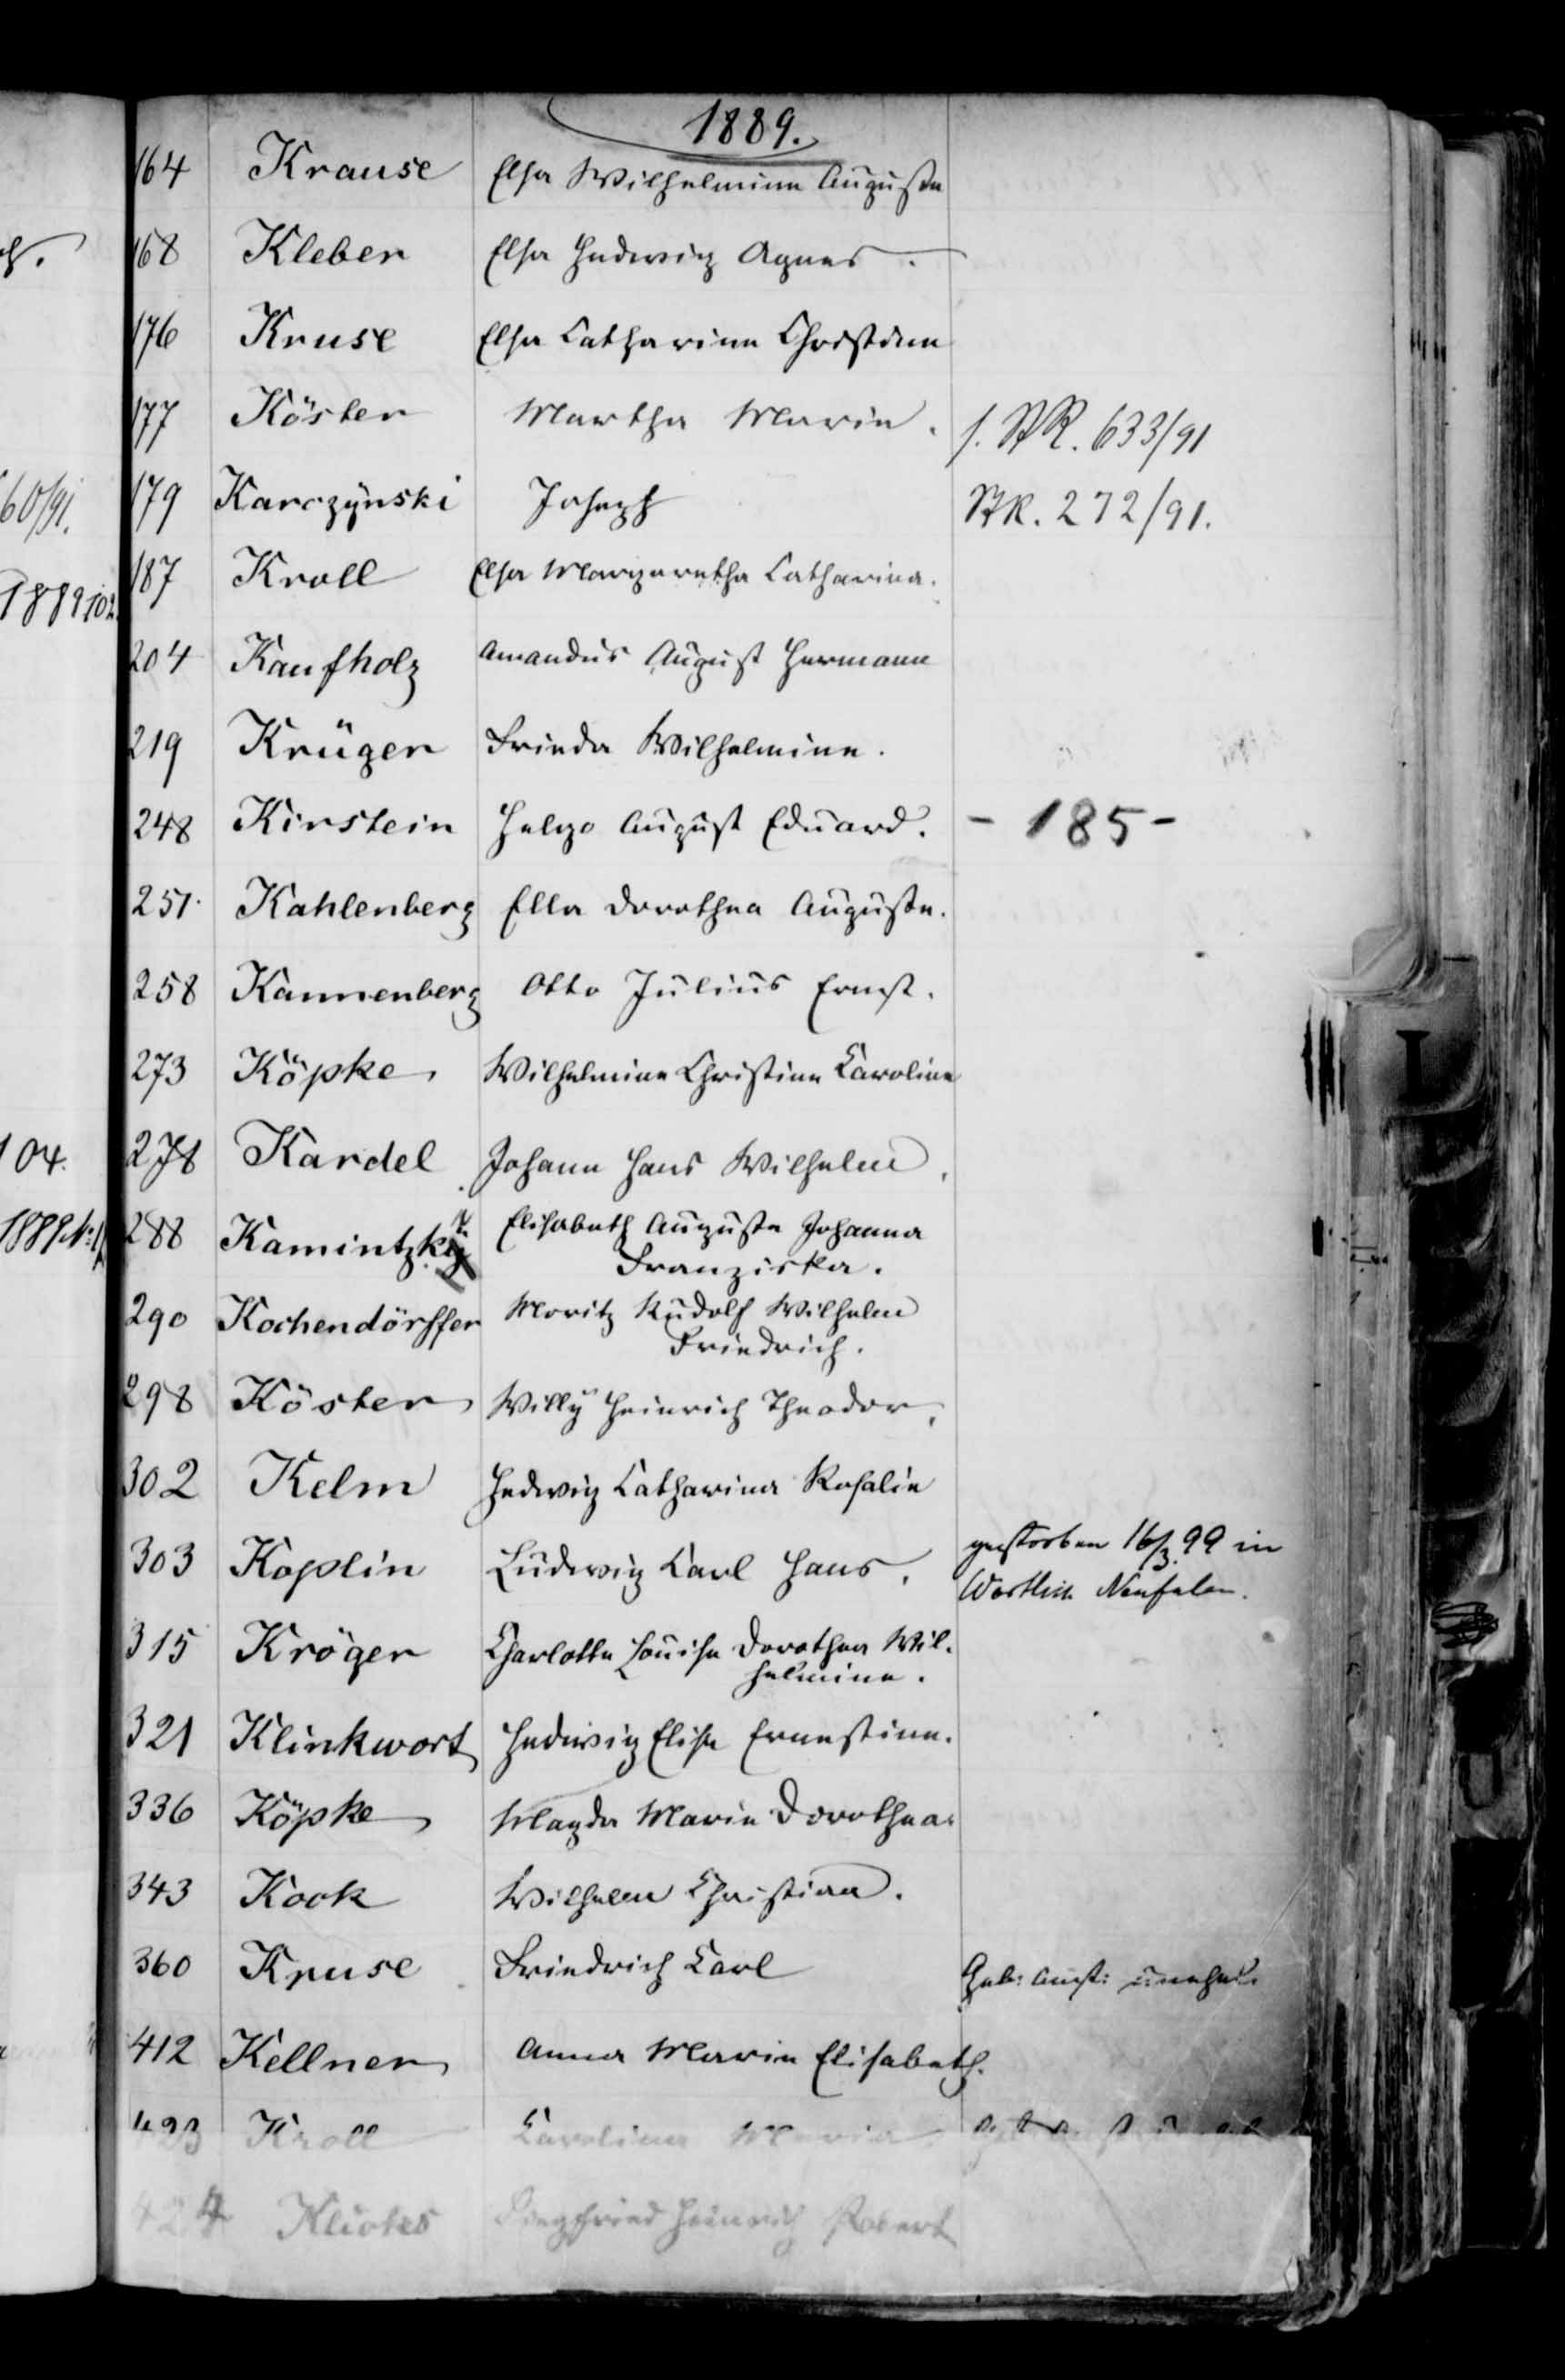 1889.
164 Krause Elsa Wilhelmine Auguste
168 Kleber Elsa Hedwig Agnes.
176 Kruse Elsa Catharine Christine
177 Köster Martha Marie. s. StR. 633/91
60/91. 179 Karczynski Joseph StR. 272/91.
187 Kroll Elsa Margaretha Catharina.
1889
204 Kaufholz Amandus August Hermann
219 Krüger Frieda Wilhelmine.
248 Kirstein Helgo August Eduard. - 185 -
251. Kahlenberg Ella Dorothea Auguste.
258 Kannenberg Otto Julius Ernst.
273 Köpke Wilhelmine Christine Caroline
104. 278 Kardel Johann Hans Wilhelm.
1889 288 Kamintzky Elisabeth Auguste Johanna
Franziska.
290 Kochendörffer Moritz Rudolf Wilhelm
Friedrich.
298 Köster Willy Heinrich Theodor.
302 Kelm Hedwig Catharina Rosalie
303 Koplin Ludwig Carl Hans. gestorben 16/3. 99 in
315 Kröger Charlotte Louise Dorothea Wil-
helmine.
321 Klinkwort Hedwig Elise Ernestine.
336 Köpke Magda Marie Dorothea.
343 Kock Wilhelm Christian.
360 Kruse Friedrich Carl Geb: Anst: unehel.
412 Kellner Anna Marie Elisabeth.
423 Kroll Caroline Maria
424 Siegfried Heinrich Robert